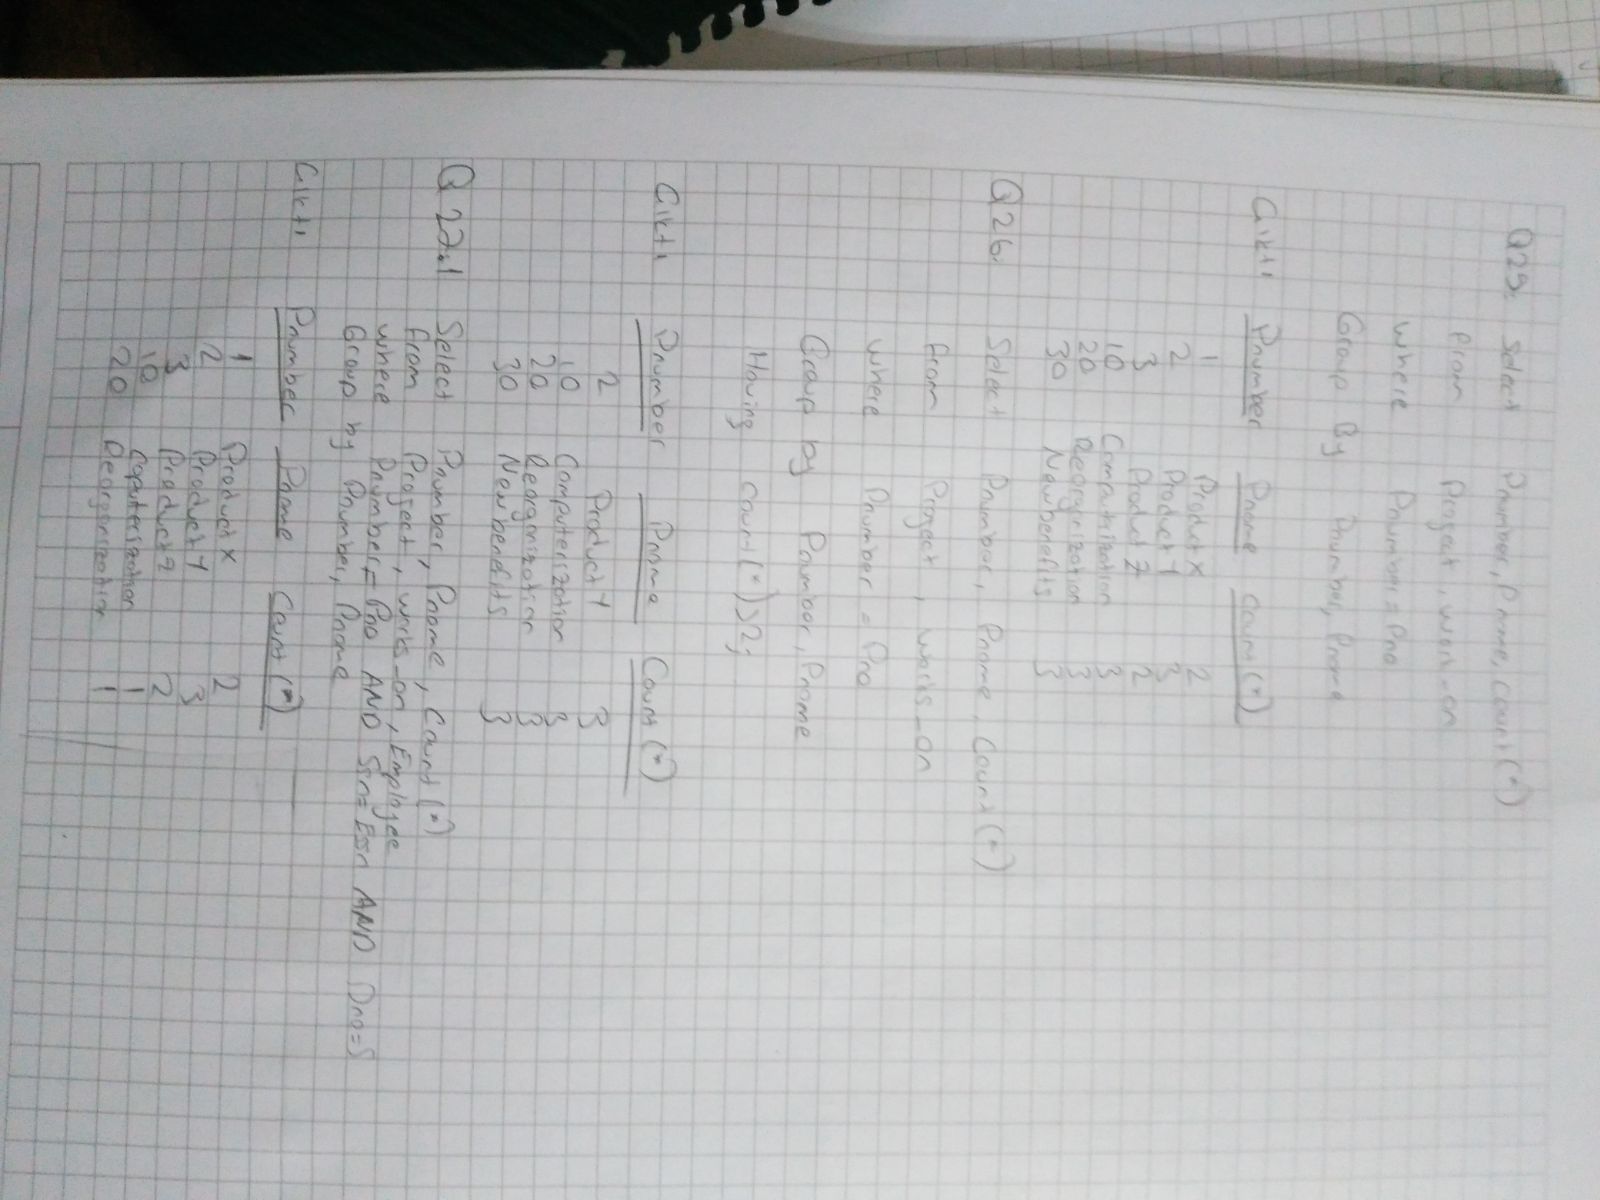 Q25: Select Pnumber, Pname, count(*)
From Project, work_on
where Pnumber = Pno
Group By Pnumber, Pname
Çıktı Pnumber Pname Count(*)
1 Product x 2
2 Product Y 3
3 Product Z 2
10 Computerization 3
20 Reorgnization 3
30 Newbenefits 3
Q26. Select Pnumber, Pname, Count(*)
from Project, works_on
where Pnumber = Pno
Group by Pnumber, Pname
Having count(*)>2;
Çıktı Pnumber Pname Count(*)
2 Product Y 3
10 Computerization 3
20 Reorganization 3
30 Newbenefits 3
Q 27.1 Select Pnumber, Pname, Count(*)
from Project, works_on, Employee
where Pnumber= Pno AND Ssn=Essn AND Dno=5
Group by Pnumber, Pname
Çıktı Pnumber Pname Count(*)
1 Product x 2
2 Product Y 3
3 Product Z 2
10 Coputerization 1
20 Reorganization 1